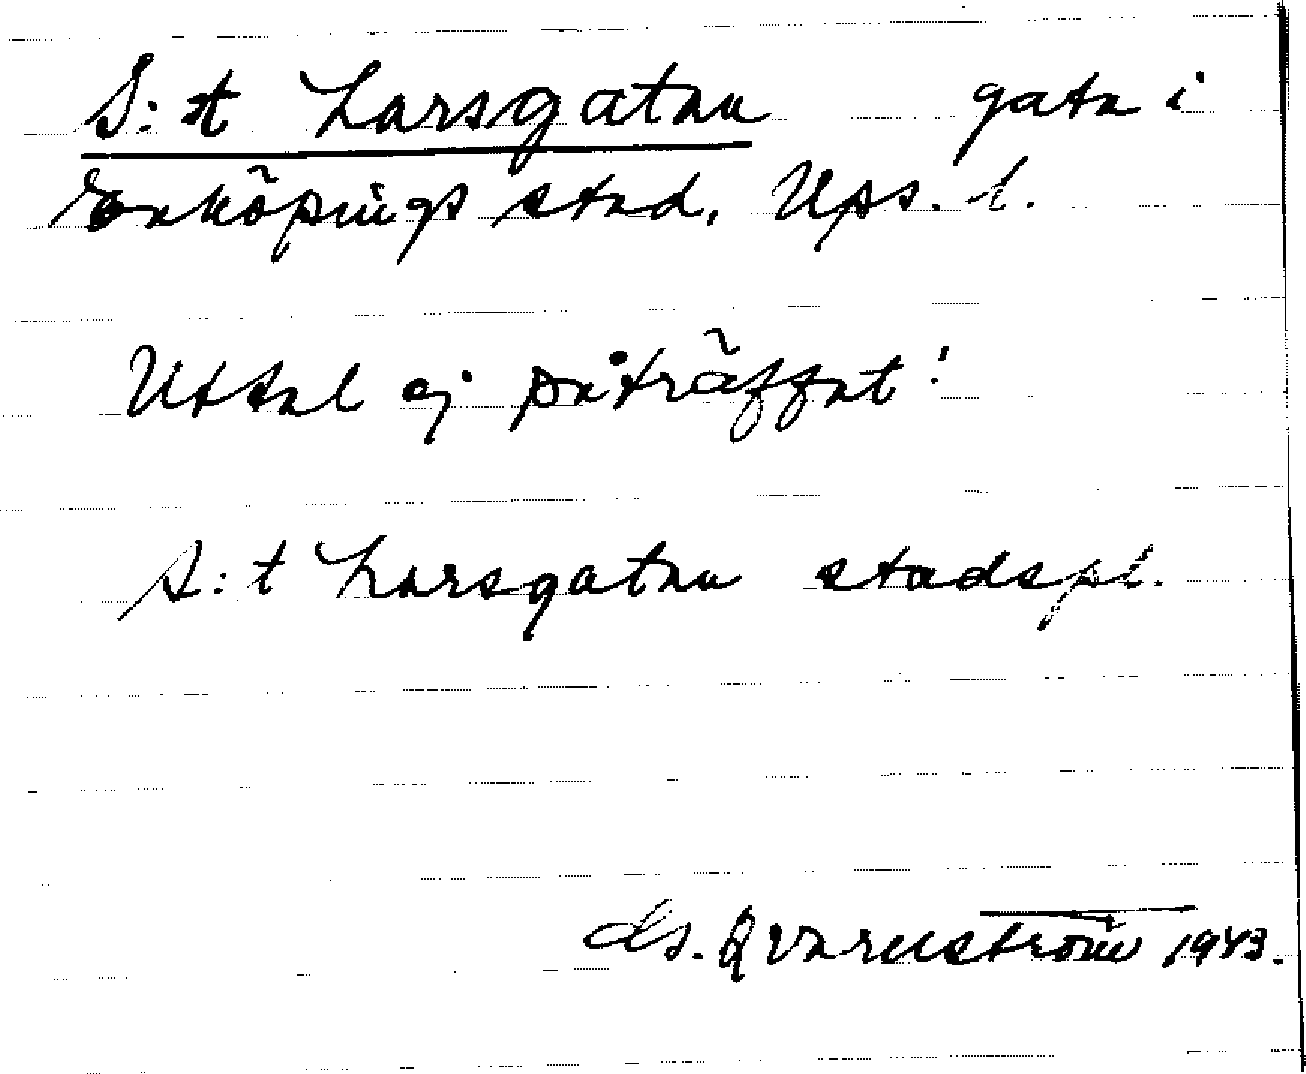 S:t Larsgatan gata i
Enköpings stad, Ups. l.
Uttal ej påträffat!
S:t Larsgatan stadspl.
Ls. Qvarnström 1943.